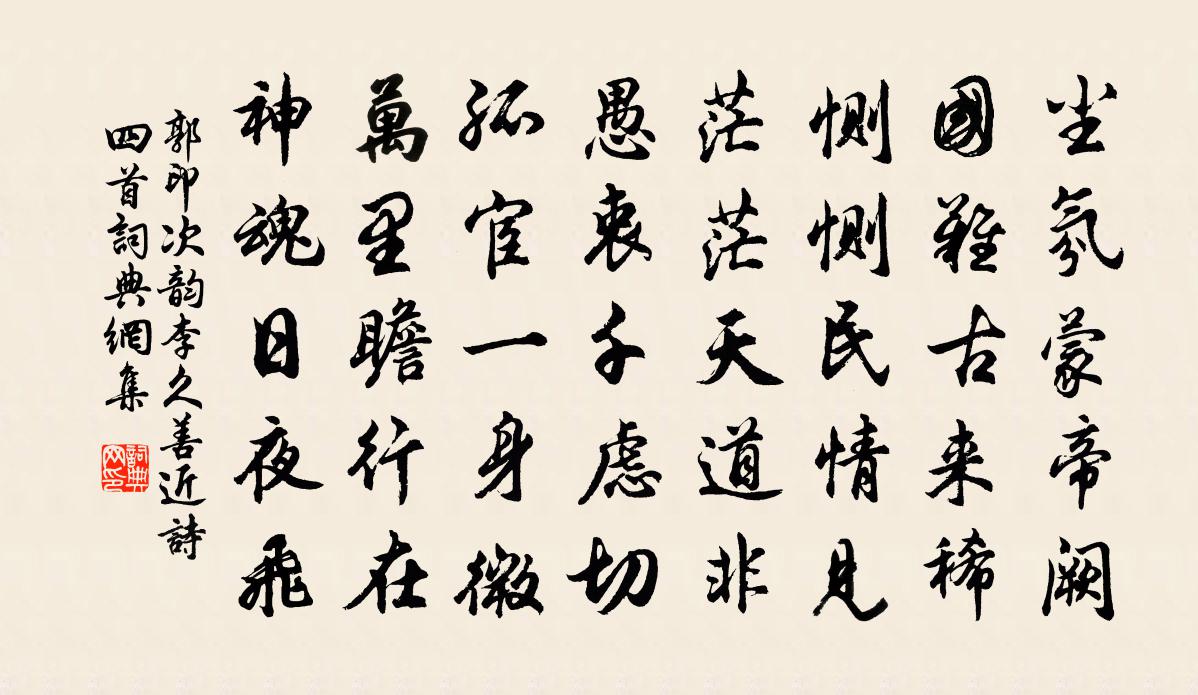 尘氛蒙帝阙
國难古来稀
恻恻民情见
茫茫天道非
愚衷千虑切
孤宦一身微
萬里瞻行在
神魂日夜飛
郭印次韵李久善近詩
四首詞典網集
詞典網印